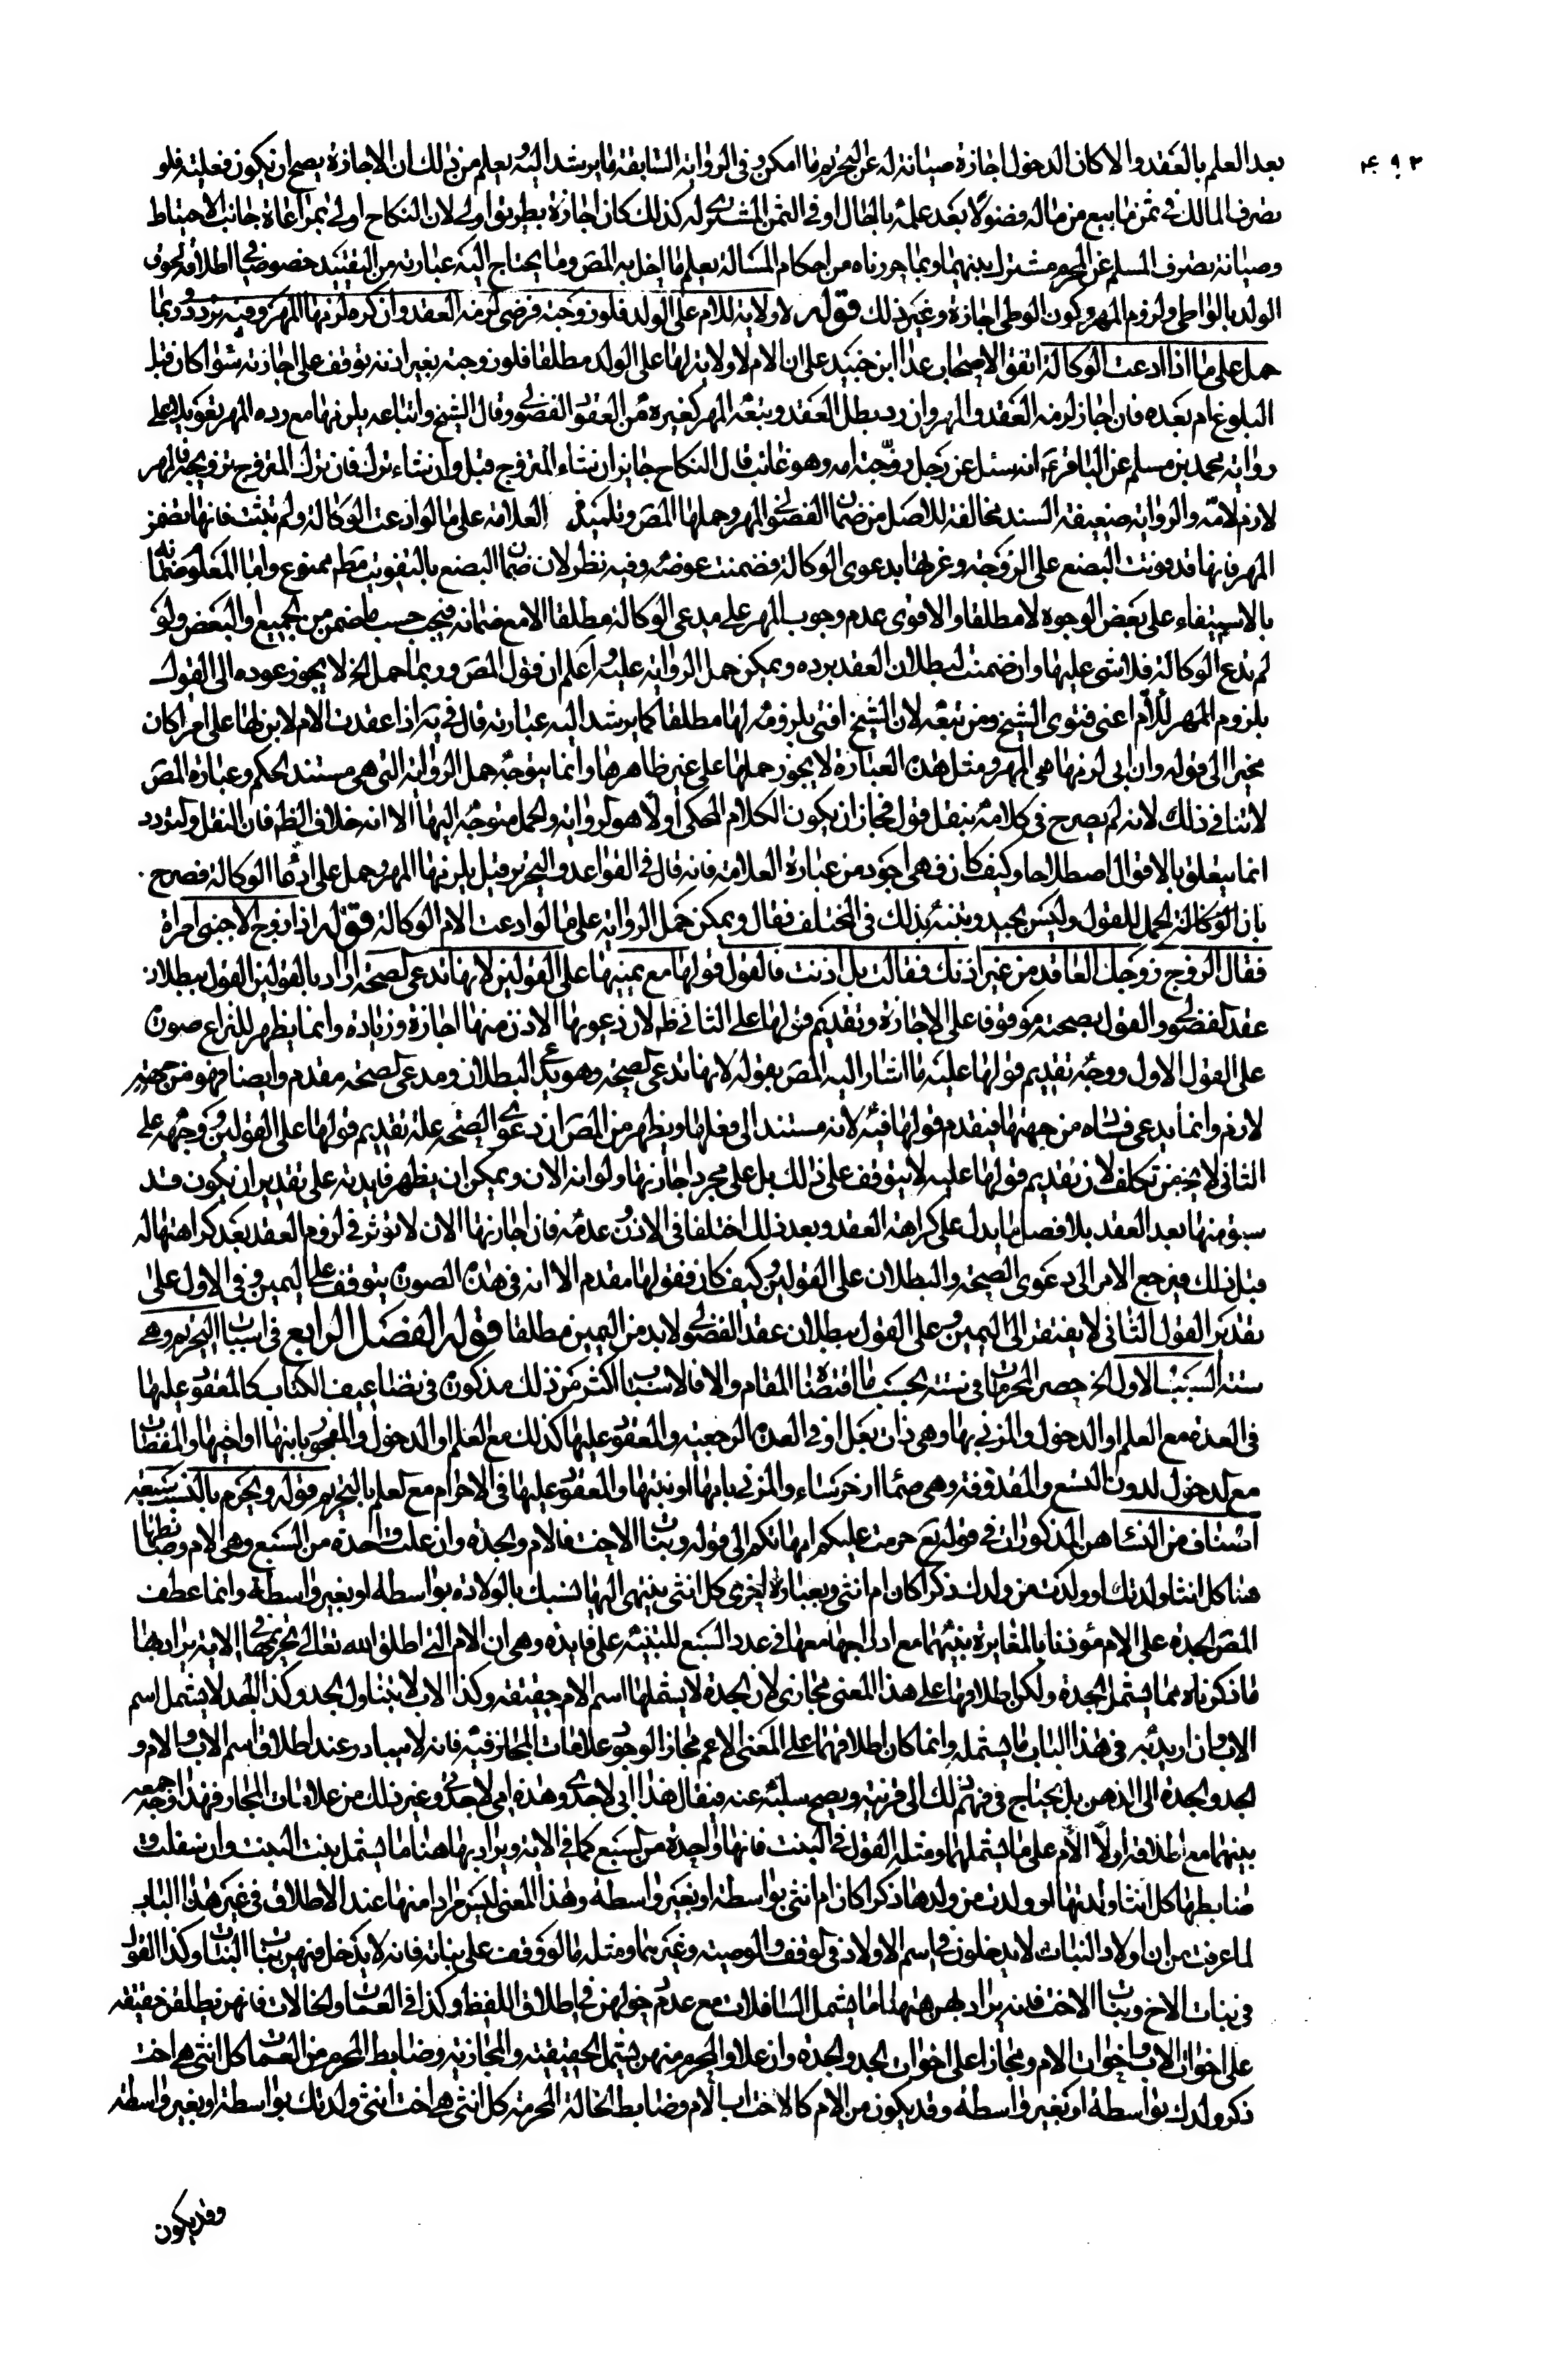 ۴۹۲
بعد العلم بالعقد والا كان الدخول اجازة صيانة له عن التحريم ما امكن وفى الرواية السابقة ما يرشد اليه ويعلم من ذلك ان الاجازة يصح ان يكون فعلية فلو
تصرف المالك فى ثمن ما بيع من ماله فضولا بعد علمه بالحال او فى الثمن المشترى له كذلك كان اجازة بطريق اولى لان النكاح اولى بمراعاة جانب الاحتياط
وصيانة تصرف المسلم عن المحرم مشترك بينهما وبما حررناه من احكام المسالة يعلم ما اخل به المص وما يحتاج اليه عبارته من التقييد خصوصا فى اطلاقه لحوق
الولد بالواطى ولزوم المهر وكون الوطى اجازة وغير ذلك قوله لا ولاية للام على الولد فلو زوجته فرضى لزمه العقد وان كره لزمها المهر وفيه تردد وربما
حمل على ما اذا ادعت الوكالة اتفق الاصحاب عدا ابن جنيد على ان الام لا ولاية لها على الولد مطلقا فلو زوجته بغير اذنه توقف على اجازته سواء كان قبل
البلوغ ام بعده فان اجاز لزمه العقد والمهر وان رد بطل العقد وتبعه المهر كغيره من العقود الفضولى وقال الشيخ واتباعه يلزمها مع رده المهر تعويلا على
رواية محمد بن مسلم عن الباقر ع انه سئل عن رجل زوجته امه وهو غائب قال النكاح جايز ان شاء المتزوج قبل وان شاء ترك فان ترك المتزوج تزويجه فالمهر
لازم لامه والرواية ضعيفة السند مخالفة للاصل من ضمان الفضولى المهر وحملها المص وتلميذه العلامة على ما لو ادعت الوكالة ولم تثبت فانها تضمن
المهر فانها قد فوتت البضع على الزوجة وغرتها بدعوى الوكالة فضمنت عوضه وفيه نظر لان ضمان البضع بالتفويت مطم ممنوع وانما المعلوم ضمانه
بالاستيفاء على بعض الوجوه لا مطلقا والاقوى عدم وجوب المهر على مدعى الوكالة مطلقا الا مع ضمانه فيجب حسب ما ضمن من الجميع او البعض ولو
لم تدع الوكالة فلا شى عليها وان ضمنت لبطلان العقد برده ويمكن حمل الرواية عليه واعلم ان قول المص وربما حمل الخ لا يجوز عوده الى القول
بلزوم المهر للام اعنى فتوى الشيخ ومن تبعه لان الشيخ افتى بلزومه لها مطلقا كما يرشد اليه عبارته قال فى يه اذا عقدت الام لابن لها على امراة كان
مخيرا الى قوله وان ابى لزمها هى المهر ومثل هذه العبارة لا يجوز حملها على غير ظاهرها وانما يتوجه حمل الرواية التى هى مستند الحكم وعبارة المص
لا تنافى ذلك لانه لم يصرح فى كلامه بنقل قول فجاز ان يكون الكلام المحكى اولا هو الرواية والحمل متوجه اليها الا انه خلاف الظ فان النقل والتردد
انما يتعلق بالاقوال اصطلاحا وكيف كان فهى اجود من عبارة العلامة فانه قال فى القواعد والتحرير قيل يلزمها المهر وحمل على ادعاء الوكالة فصرح
بان الوكالة لحمل للقول وليس بجيد وتنبه لذلك فى المختلف فقال ويمكن حمل الرواية على ما لو ادعت الام الوكالة قوله اذا زوج الاجنبى امراة
فقال الزوج زوجك العاقد من غير اذنك فقالت بل اذنت فالقول قولها مع يمينها على القولين لانها تدعى الصحة اراد بالقولين القول ببطلان
عقد الفضولى والقول بصحته موقوفا على الاجازة وتقديم قولها على الثانى ظ لان دعويها الاذن منها اجازة وزيادة وانما يظهر للنزاع صورة
على القول الاول ووجه تقديم قولها عليه ما اشار اليه المص بقوله لانها تدعى الصحة وهو يدعى البطلان ومدعى الصحة مقدم وايضا فهو من جهته
لازم وانما يدعى فساده من جهتها فيقدم قولها فيه لانه مستند الى فعلها ويظهر من المص ان دعوى الصحة علة تقديم قولها على القولين ووجهه على
الثانى لا يخ من تكلف لان تقديم قولها عليه لا يتوقف على ذلك بل على مجرد اجازتها ولو انه الان ويمكن ان يظهر فايدته على تقدير ان يكون قد
سبق منها بعد العقد بلا فصل ما يدل على كراهة العقد وبعد ذلك اختلفا فى الاذن وعدمه فان اجازتها الان لا تؤثر فى لزوم العقد بعد كراهتها له
قبل ذلك فيرجع الامر الى دعوى الصحة والبطلان على القولين وكيف كان فقولها مقدم الا انه فى هذه الصورة يتوقف على اليمين وفى الاول على
تقدير القول الثانى لا يفتقر الى اليمين وعلى القول ببطلان عقد الفضولى لا بد من اليمين مطلقا قوله الفصل الرابع فى اسباب التحريم وهى
ستة السبب الاول الخ حصر المحرمات فى ستة بحسب ما اقتضاه المقام والا فالاسباب اكثر من ذلك مذكورة فى تضاعيف الكتاب كالمعقود عليها
فى العدة مع العلم او الدخول والمزنى بها وهى ذات بعل او فى العدة الرجعية والمعقود عليها كذلك مع العلم او الدخول والمفجور بابنها او اخيها والمفضاة
مع الدخول لدون التسع والمقذوفة وهى صماء او خرساء والمزنى بامها او بنتها والمعقود عليها فى الاحرام مع العلم بالتحريم قوله ويحرم بالنسب سبعة
اصناف من النساء هن المذكورات فى قوله تع حرمت عليكم امهاتكم الى قوله وبنات الاخت فالام والجدة وان علت واحدة من السبع وهى الام وضابطها
هنا كل انثى ولدتك او ولدت من ولدك ذكرا كان ام انثى وبعبارة اخرى كل انثى ينتهى اليها نسبك بالولادة بواسطة او بغير واسطة وانما عطف
المص الجدة على الام مؤذنا بالمغايرة بينهما مع ادراجها معها فى عدد السبع للتنبيه على فايدة وهى ان الام التى اطلق الله تعالى تحريمها فى الاية يراد بها
ما ذكرناه مما يشمل الجدة ولكن اطلاقها على هذا المعنى مجازى لان الجدة لا يشملها اسم الام حقيقة وكذا الاب لا يتناول الجد وكذا الجد لا يشمل اسم
الاب وان اريد به فى هذا الباب ما يشمله وانما كان اطلاقهما على المعنى الاعم مجازا لوجود علامات المجاز فيه فانه لا يتبادر عند اطلاق اسم الاب والام و
الجد والجدة الى الذهن بل يحتاج فى فهم ذلك الى قرينة ويصح سلبه عنه فيقال هذا ابى لا جدى وهذه امى لا جدتى وغير ذلك من علامات المجاز فهذا وجه جمعه
بينهما مع اطلاقه اولا الام على ما يشملهما ومثله القول فى البنت فانها واحدة من السبع كما فى الاية ويراد بها هنا ما يشمل بنت البنت وان سفلت و
ضابطها كل انثى ولدتها او ولدت من ولدها ذكرا كان ام انثى بواسطة او بغير واسطة وهذا المعنى ليس مرادا منها عند الاطلاق فى غير هذا الباب
لما عرفت من ان اولاد البنات لا يدخلون فى اسم الاولاد فى الوقف والوصية وغيرهما ومثله ما لو وقف على بناته فانه لا يدخل فيهن بنات البنات وكذا القول
فى بنات الاخ وبنات الاخت فانه يراد بهن هيهنا ما يشمل السافلات مع عدم دخولهن فى اطلاق اللفظ وكذا فى العمات والخالات فانهن يطلقن حقيقة
على اخوات الاب واخوات الام ومجازا على اخوات الجد والجدة وان علا والمحرم منهن يشمل الحقيقية والمجازية وضابط المحرم من العمات كل انثى هى اخت
ذكر ولدك بواسطة او بغير واسطة وقد يكون من الام كالاخت اب الام وضابط الخالة المحرمة كل انثى هى اخت انثى ولدتك بواسطة او بغير واسطة
وقد يكون